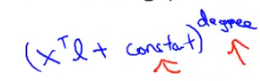 (xᵀl + constant)ᵈᵉᵍʳᵉᵉ